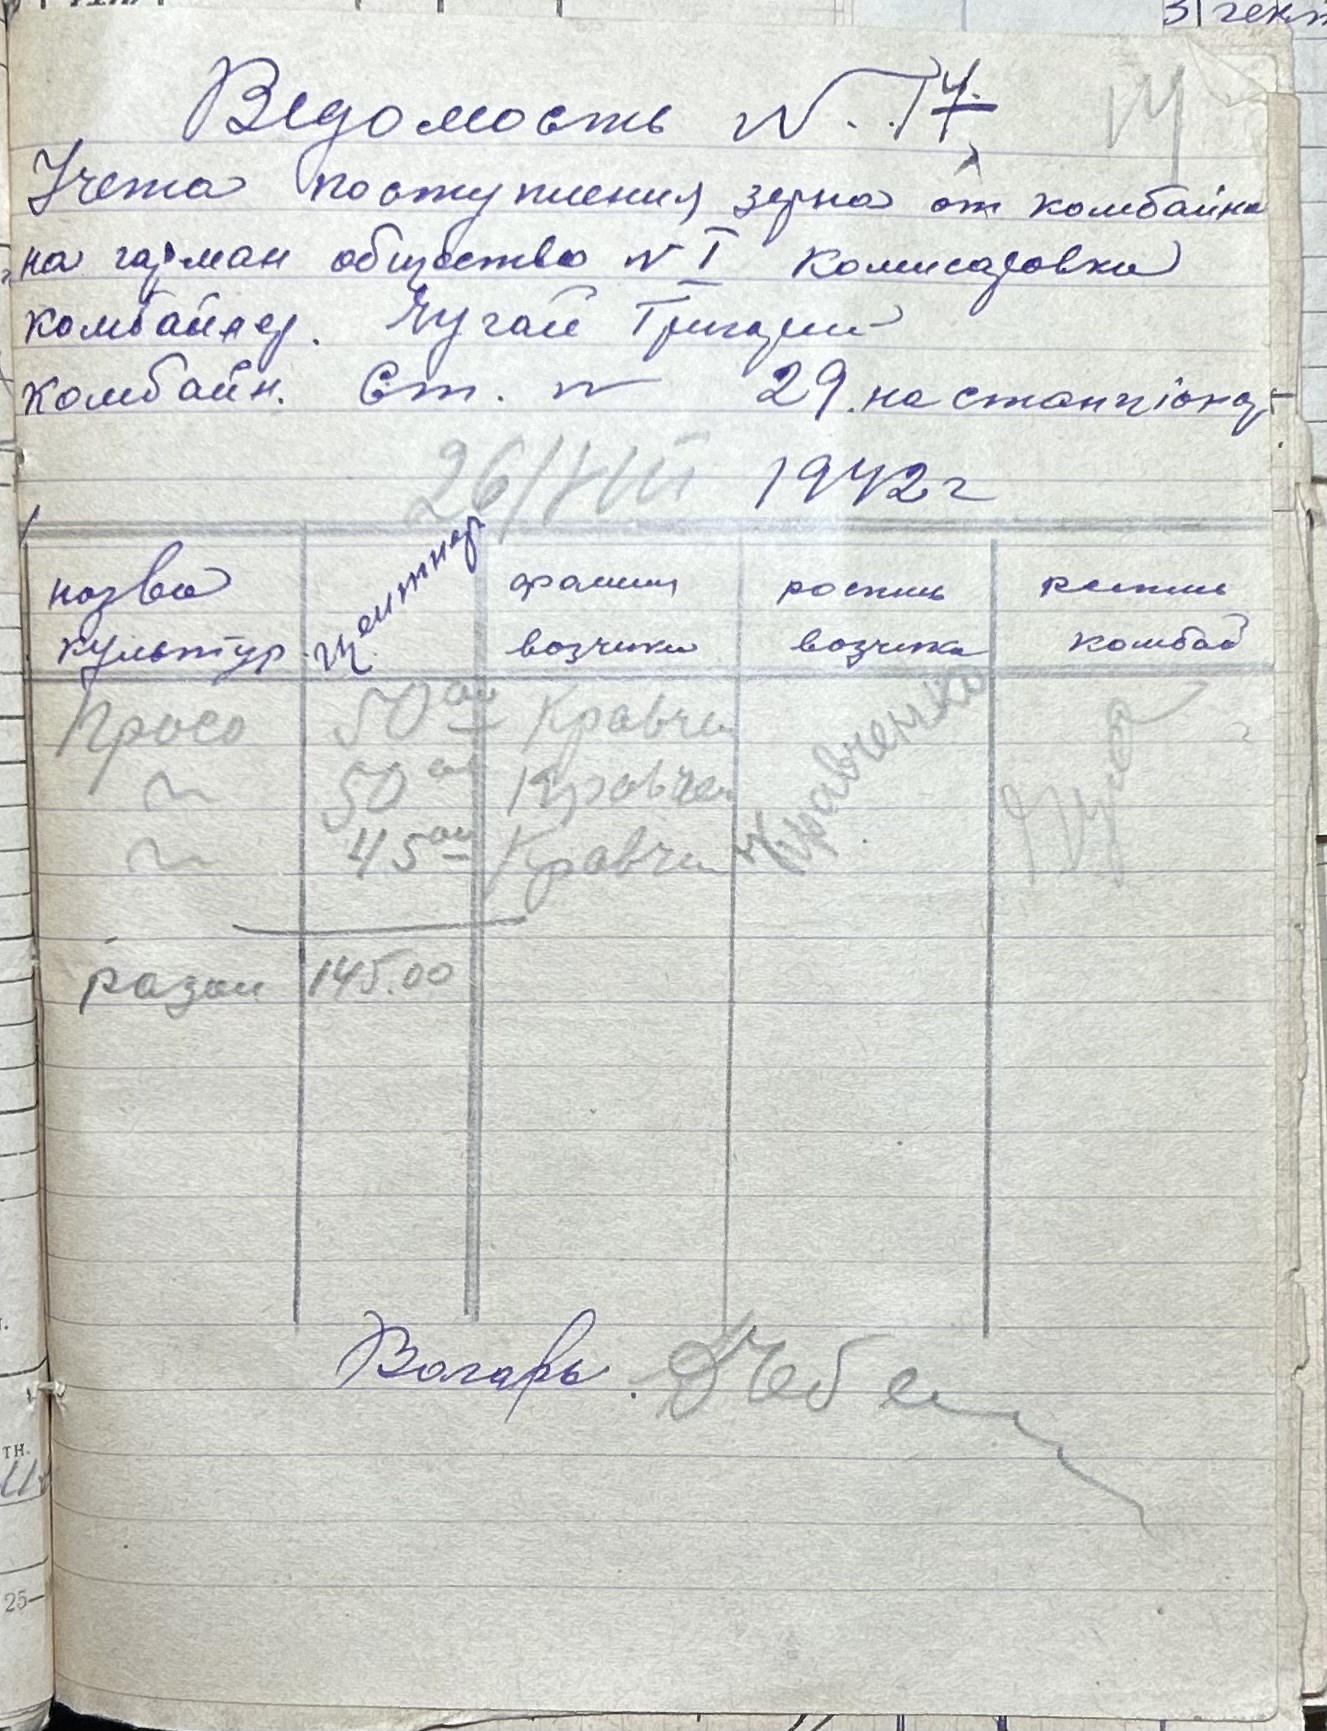 Ведомость №
Учета поступления зерна от комбайна
на гарман общество № I Комисаровки
комбайнер. Чугай Григорий
комбайн. Ст. № 29 на станціонар
26/VIII 1942 г
назва культур центнер фамил возчика роспись возчика роспись комбай
Просо 50 00 Кравчен Кравченко Чуга
〃 50 00 Кравчен
〃 45 00 Кравчен
разом 145.00
Вагарь.
ТН.
25—